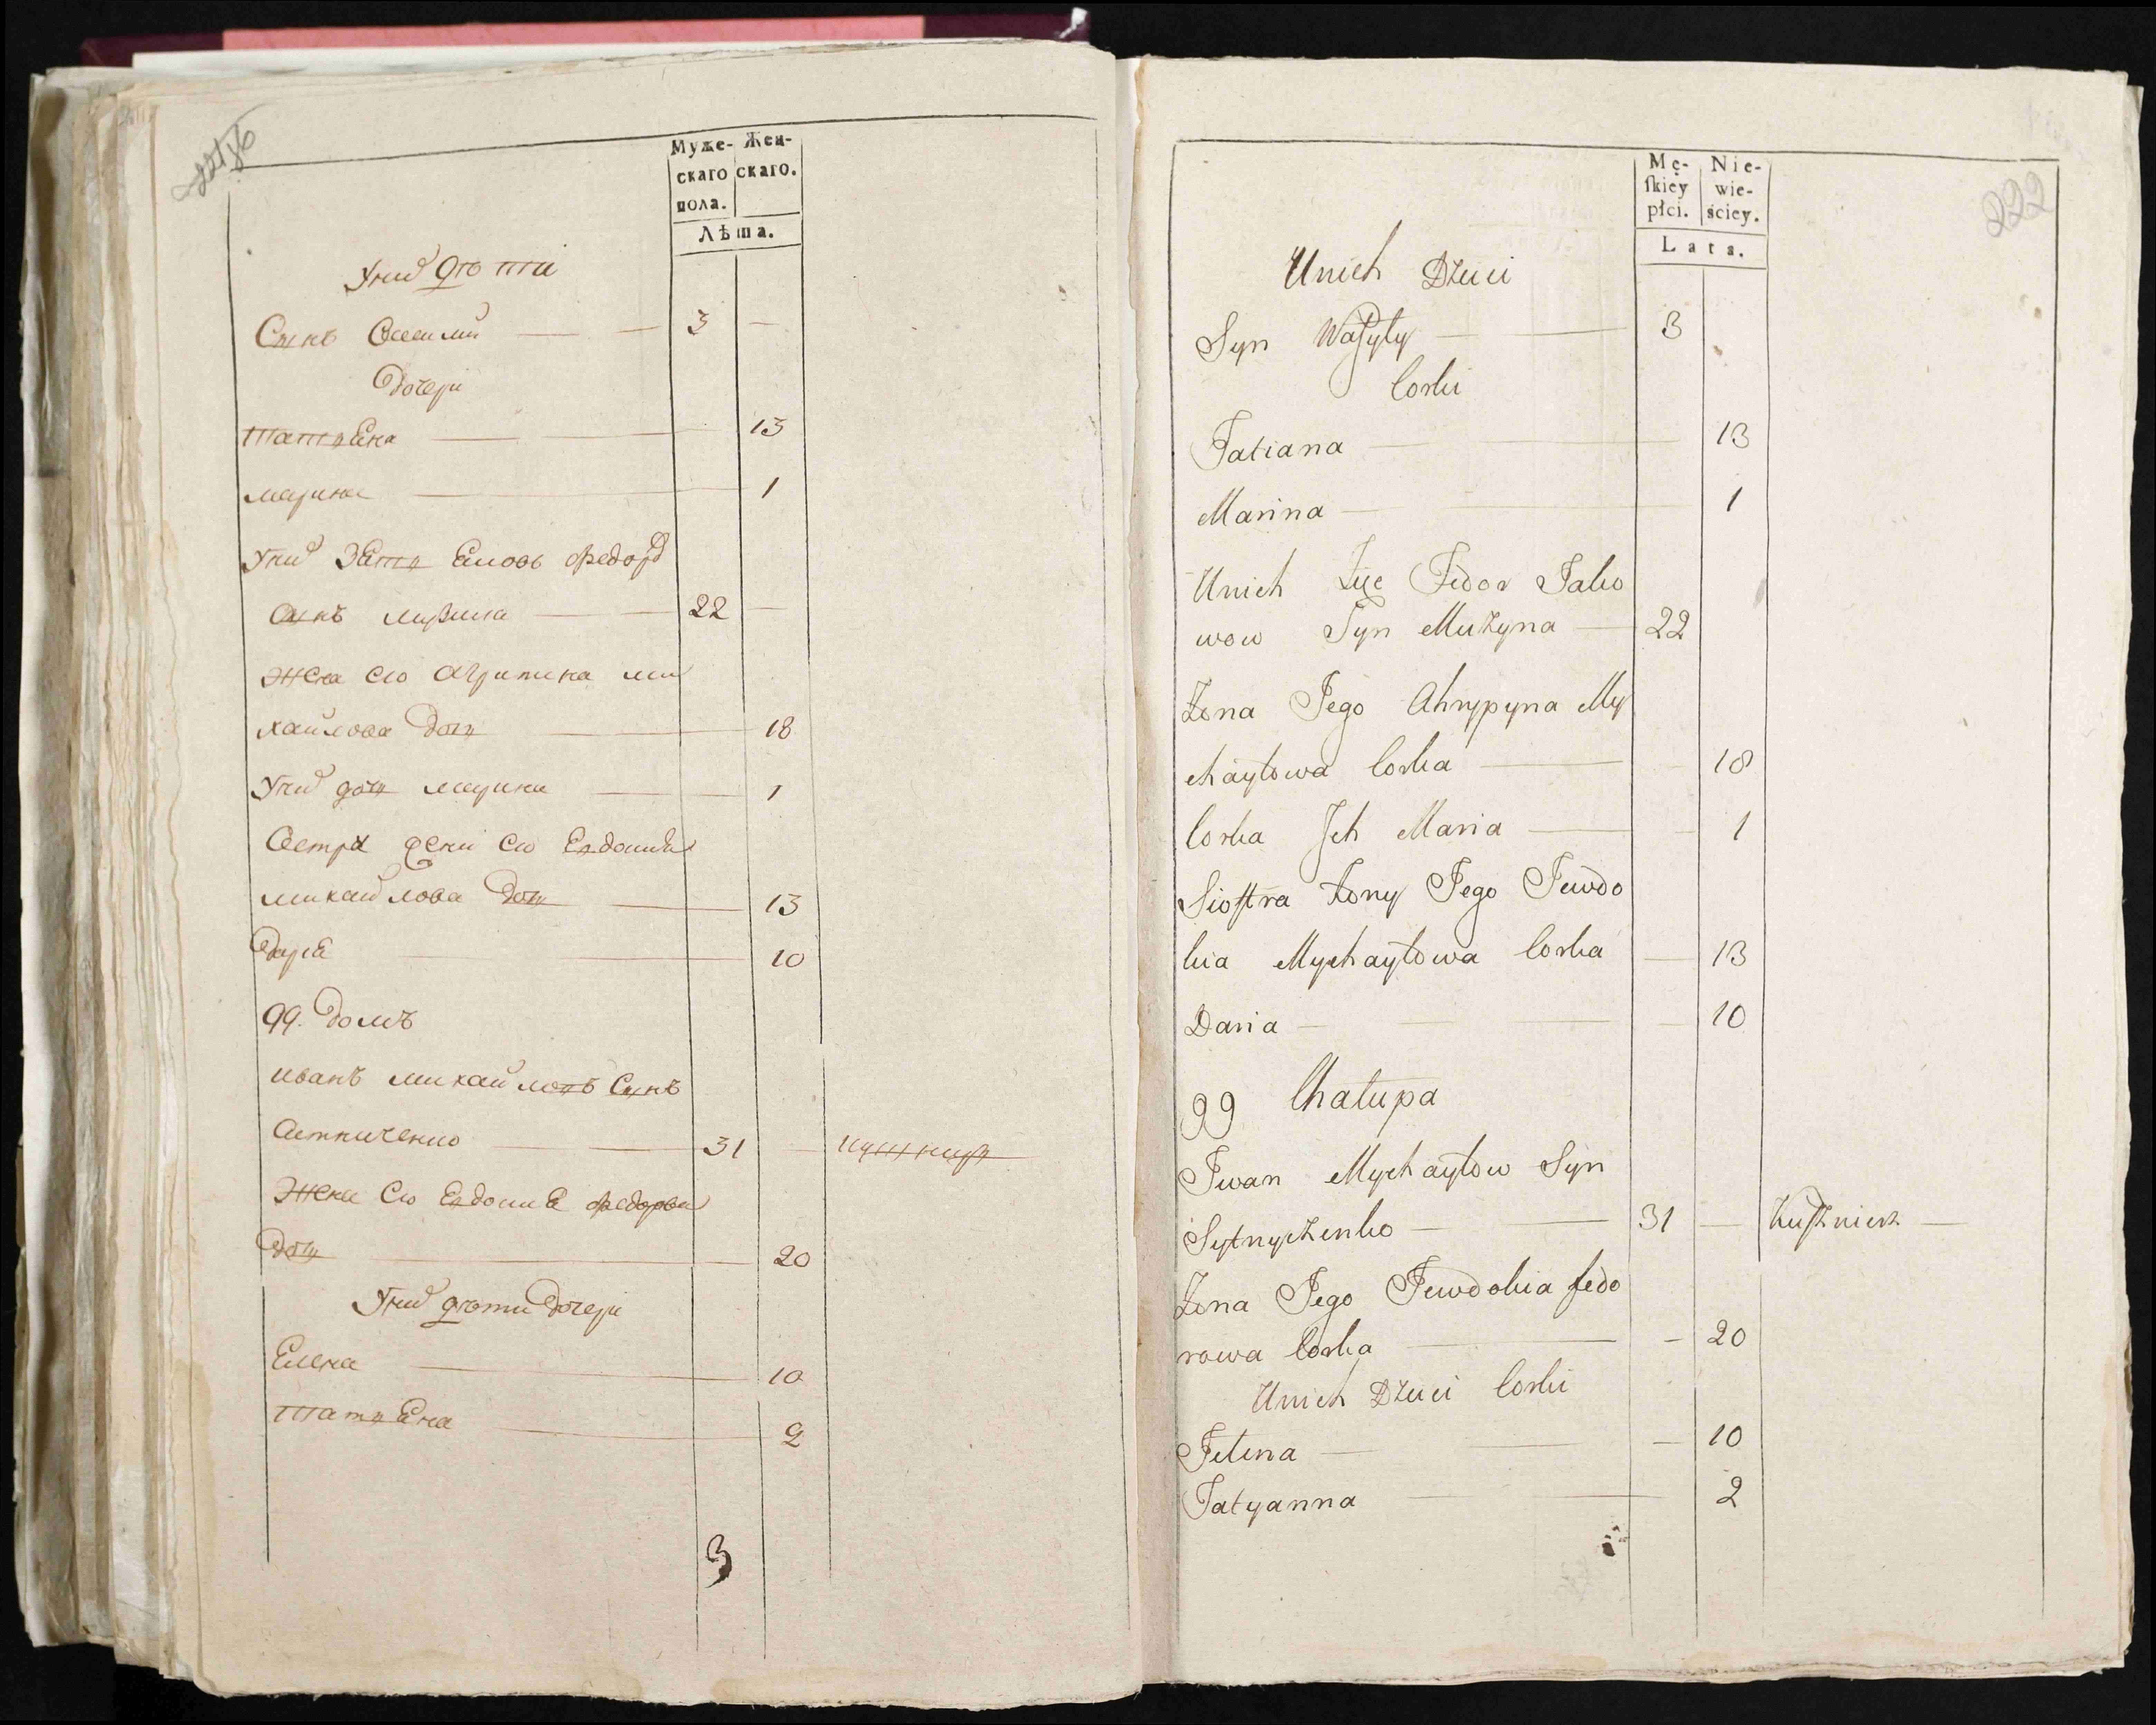 Муже-
скаго
пола.
Жен-
скаго.
Лѣта.
Унихъ дѣти
Сынъ Василий 3
дочери
татиана 13
марина 1
Унихъ Зять Яковъ федоръ
Сынъ мужина 22
жена его Агрипина ми
хайлова дочь 18
Унихъ дочь марина 1
Сестра жени его Евдокия
михайлова дочь 13
дария 10
99. домъ
иванъ михайловъ Сынъ
Ситниченко 31 кушниръ
жена его Евдокиа федорова
дочь 20
Унихъ дѣти дочери
Елена 10
татиана 2
3
222
Mę-
ſkiey
płci.
Nie-
wie-
ściey.
Lata.
Unich Dzieci
Syn Wasyly 3
Corki
Tatiana 13
Marina 1
Unich Zięc Fedor Jako
wow Syn Muzyna 22
Zona Jego Ahrypyna My
chayłowa Corka 18
Corka Jch Maria 1
Siostra Zony Jego Jewdo
kia Mychayłowa Corka 13
Daria 10
99 Chałupa
Jwan Mychayłow Syn
Sytnyczenko 31 Kusznierz
Zona Jego Jewdokia fedo
rowa Corka 20
Unich Dzieci Corki
Jelena 10
Tatyanna 2